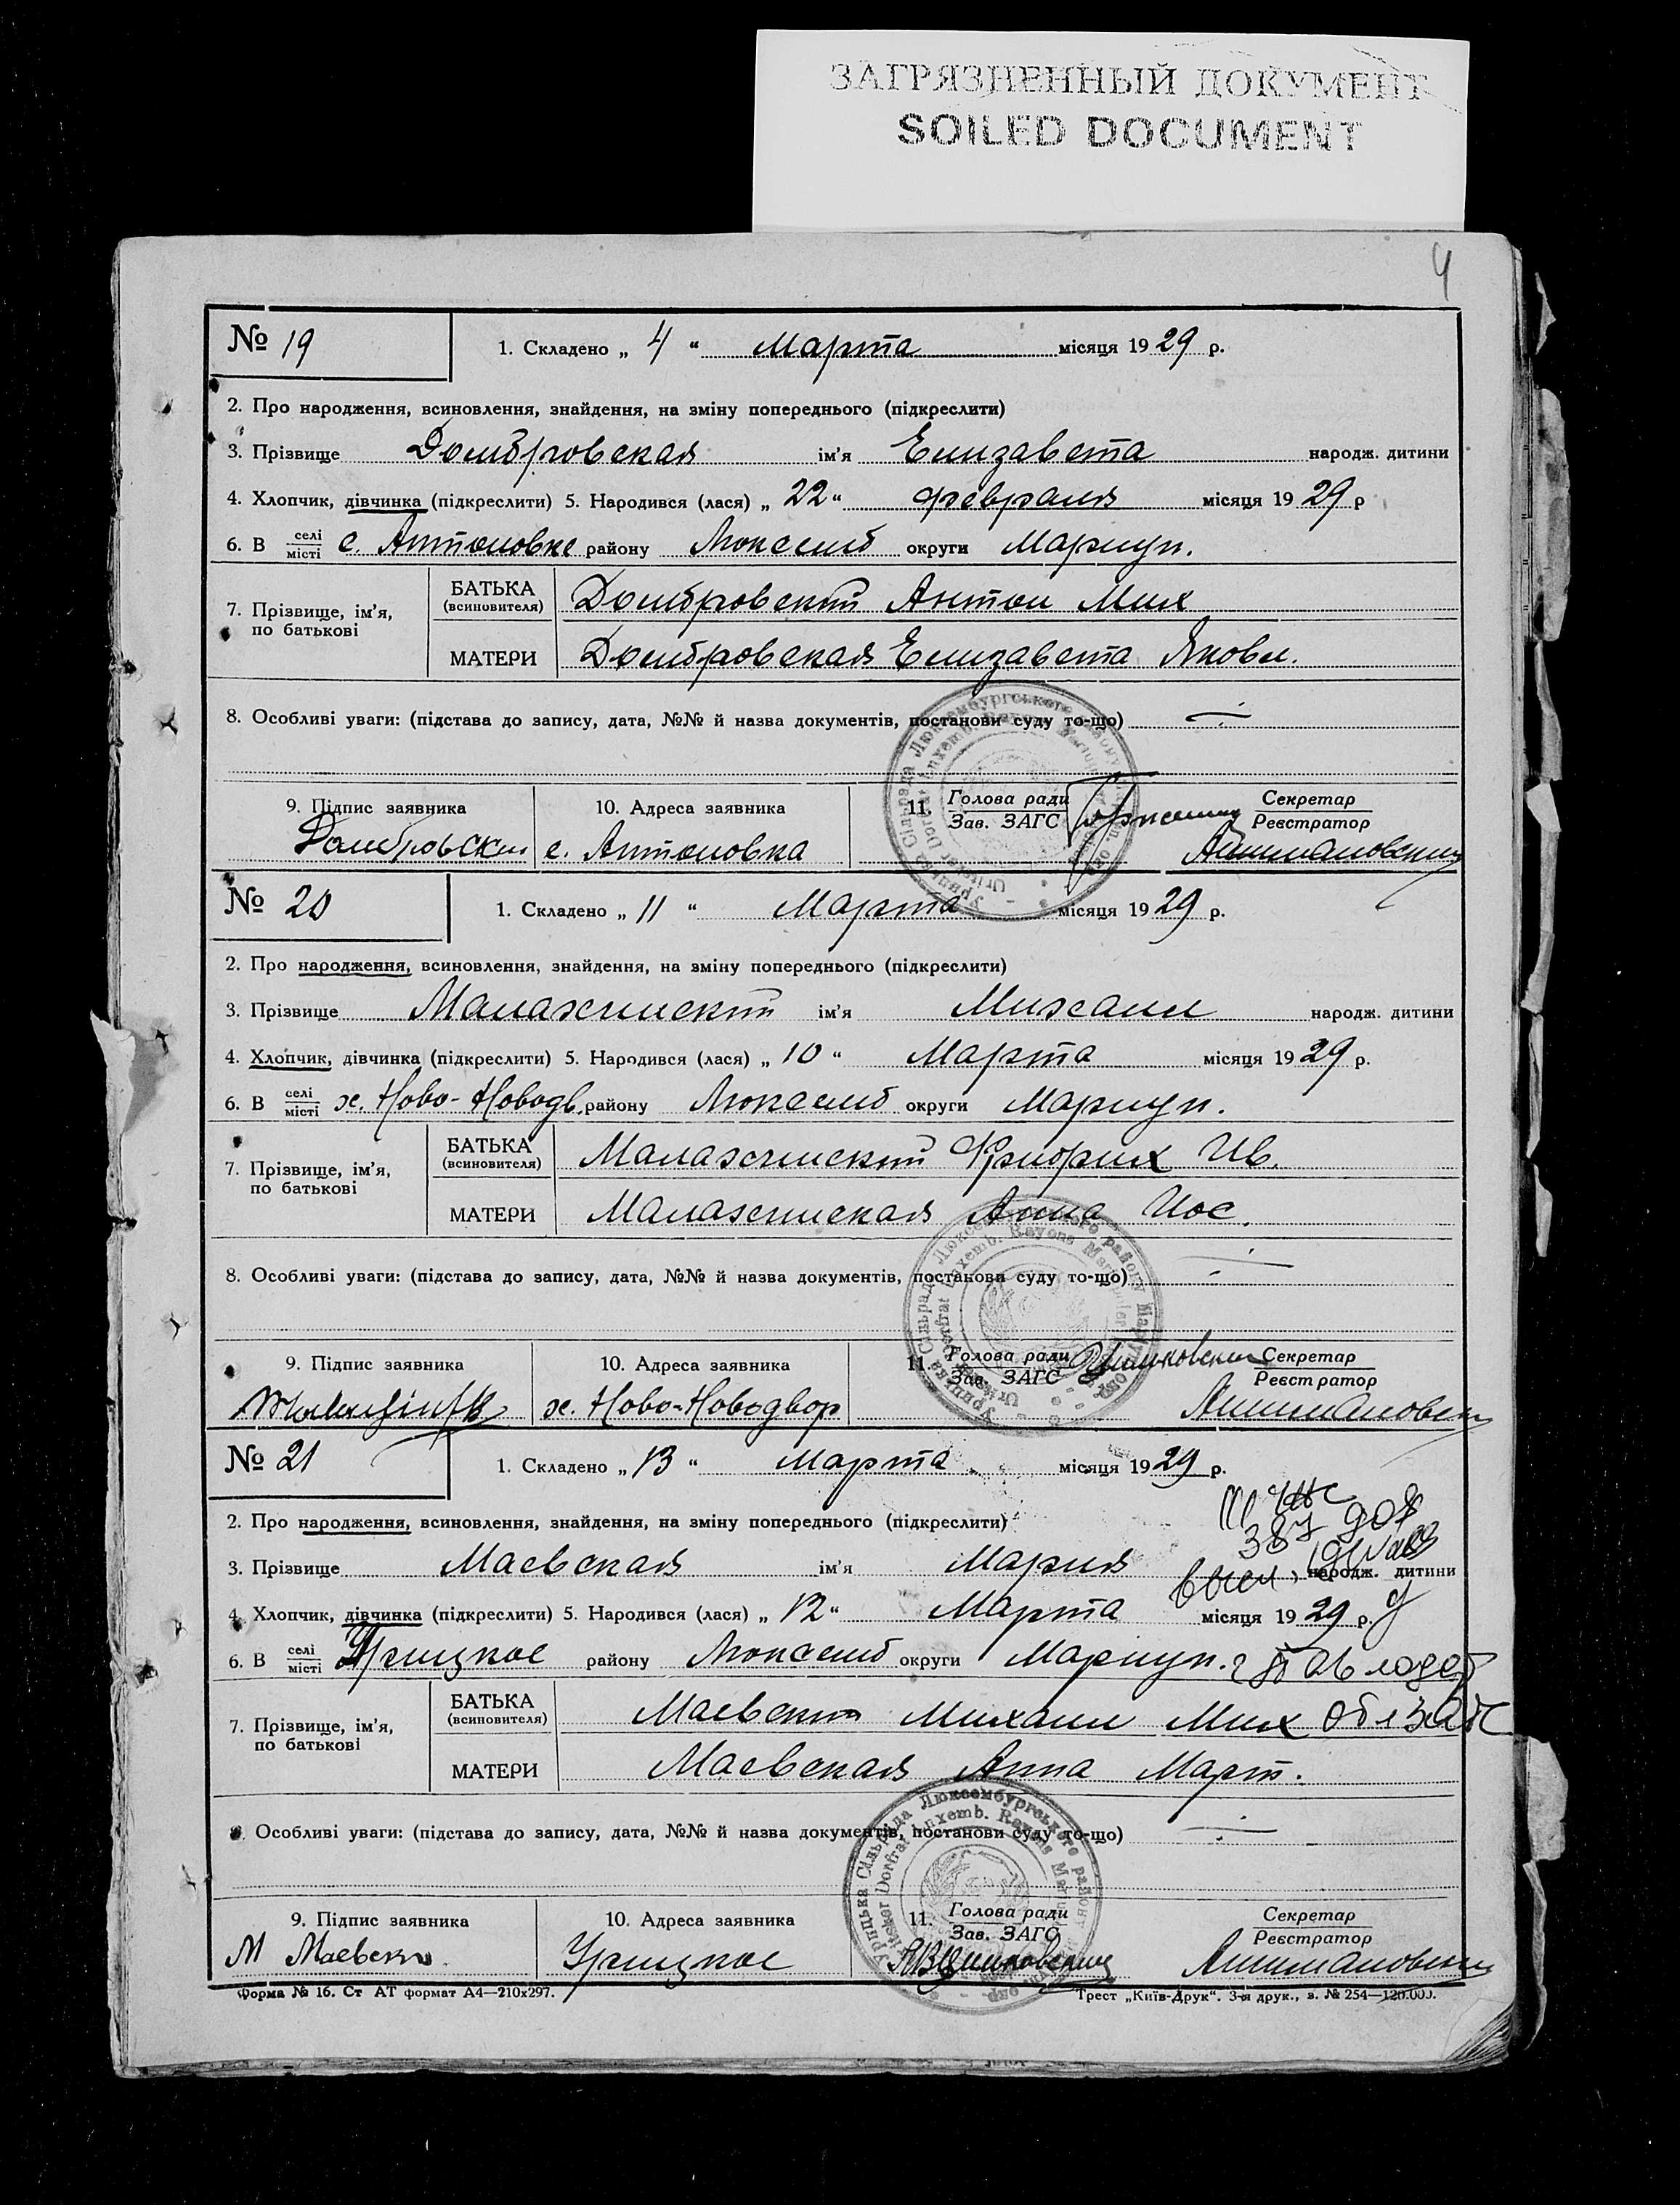 ЗАГРЯЗНЕННЫЙ ДОКУМЕНТ
SOILED DOCUMENT
4
№ 19
1. Складено „ 4 “ Марта місяця 1929 р.
2. Про народження, всиновлення, знайдення, на зміну попереднього (підкреслити)
3. Прізвище Домбровская ім’я Елизавета народж. дитини
4. Хлопчик, дівчинка (підкреслити) 5. Народився (лася) „ 22 “ февраля місяця 1929 р
6. В селі місті с. Антоновке району Люксемб округи Мариуп.
7. Прізвище, ім’я, по батькові
БАТЬКА (всиновителя) Домбровский Антон Мих
МАТЕРИ Домбровская Елизавета Яковл.
8. Особливі уваги: (підстава до запису, дата, №№ й назва документів, постанови суду то-що)
9. Підпис заявника
10. Адреса заявника
11. Голова ради Зав. ЗАГС
Секретар Реєстратор
Домбровски с. Антоновка
№ 20
1. Складено „ 11 “ Марта місяця 1929 р.
2. Про народження, всиновлення, знайдення, на зміну попереднього (підкреслити)
3. Прізвище Малахинский ім’я Михаил народж. дитини
4. Хлопчик, дівчинка (підкреслити) 5. Народився (лася) „ 10 “ Марта місяця 1929 р.
6. В селі місті х. Ново-Новодв. району Люксемб округи Мариуп.
7. Прізвище, ім’я, по батькові
БАТЬКА (всиновителя) Малахинский Фридрих Ив.
МАТЕРИ Малахинская Анна Иос.
8. Особливі уваги: (підстава до запису, дата, №№ й назва документів, постанови суду то-що)
9. Підпис заявника
10. Адреса заявника
11. Голова ради Зав. ЗАГС
Секретар Реєстратор
х. Ново-Новодвор
№ 21
1. Складено „ 13 “ Марта місяця 1929 р.
2. Про народження, всиновлення, знайдення, на зміну попереднього (підкреслити)
3. Прізвище Маевская ім’я Мария народж. дитини
4. Хлопчик, дівчинка (підкреслити) 5. Народився (лася) „ 12 “ Марта місяця 1929 р.
6. В селі місті Урицкое району Люксемб округи Мариуп.
7. Прізвище, ім’я, по батькові
БАТЬКА (всиновителя) Маевский Михаил Мих
МАТЕРИ Маевская Анна Март.
8. Особливі уваги: (підстава до запису, дата, №№ й назва документів, постанови суду то-що)
9. Підпис заявника
10. Адреса заявника
11. Голова ради Зав. ЗАГС
Секретар Реєстратор
М Маевски Урицкое
Форма № 16. Ст АТ формат А4—210х297.
Трест „Київ-Друк“. 3-я друк., з. № 254—120.000.